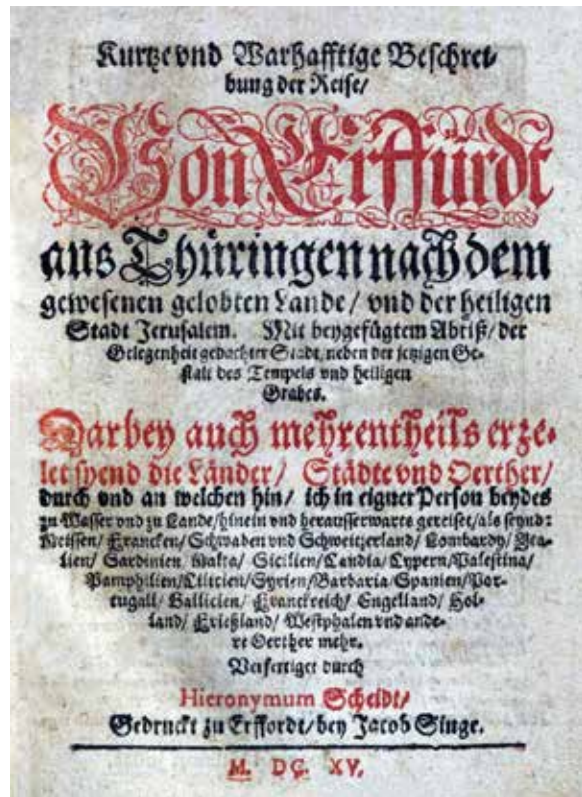 Kurtze vnd Warhafftige Beschrei-
bung der Reise/
Von Erffurdt
aus Thüringen nach dem
gewesenen gelobten Lande/ vnd der heiligen
Stadt Jerusalem. Mit beygefügtem Abriß/ der
Gelegenheit gedachter Stadt, neben der jetzigen Ge-
stalt des Tempels vnd heiligen
Grabes.
Darbey auch mehrentheils erze-
let seynd die Länder/ Städte vnd Oerther/
durch vnd an welchen hin/ ich in eigner Person beydes
zu Wasser vnd zu Lande/ hinein vnd herausserwarts gereiset/ als seynd:
Meissen/ Francken/ Schwaben vnd Schweitzerland/ Lombardy/ Ita-
lien/ Sardinien/ Malta/ Sicilien/ Candia/ Cypern/ Palestina/
Pamphilien/ Cilicien/ Syrien/ Barbaria/ Spanien/ Por-
tugall/ Gallicien/ Franckreich/ Engelland/ Hol-
land/ Frießland/ Westphalen vnd ande-
re Oerther mehr.
Verfertiget durch
Hieronymum Scheidt/
Gedruckt zu Erffordt/ bey Jacob Singe.
M. DC. XV.